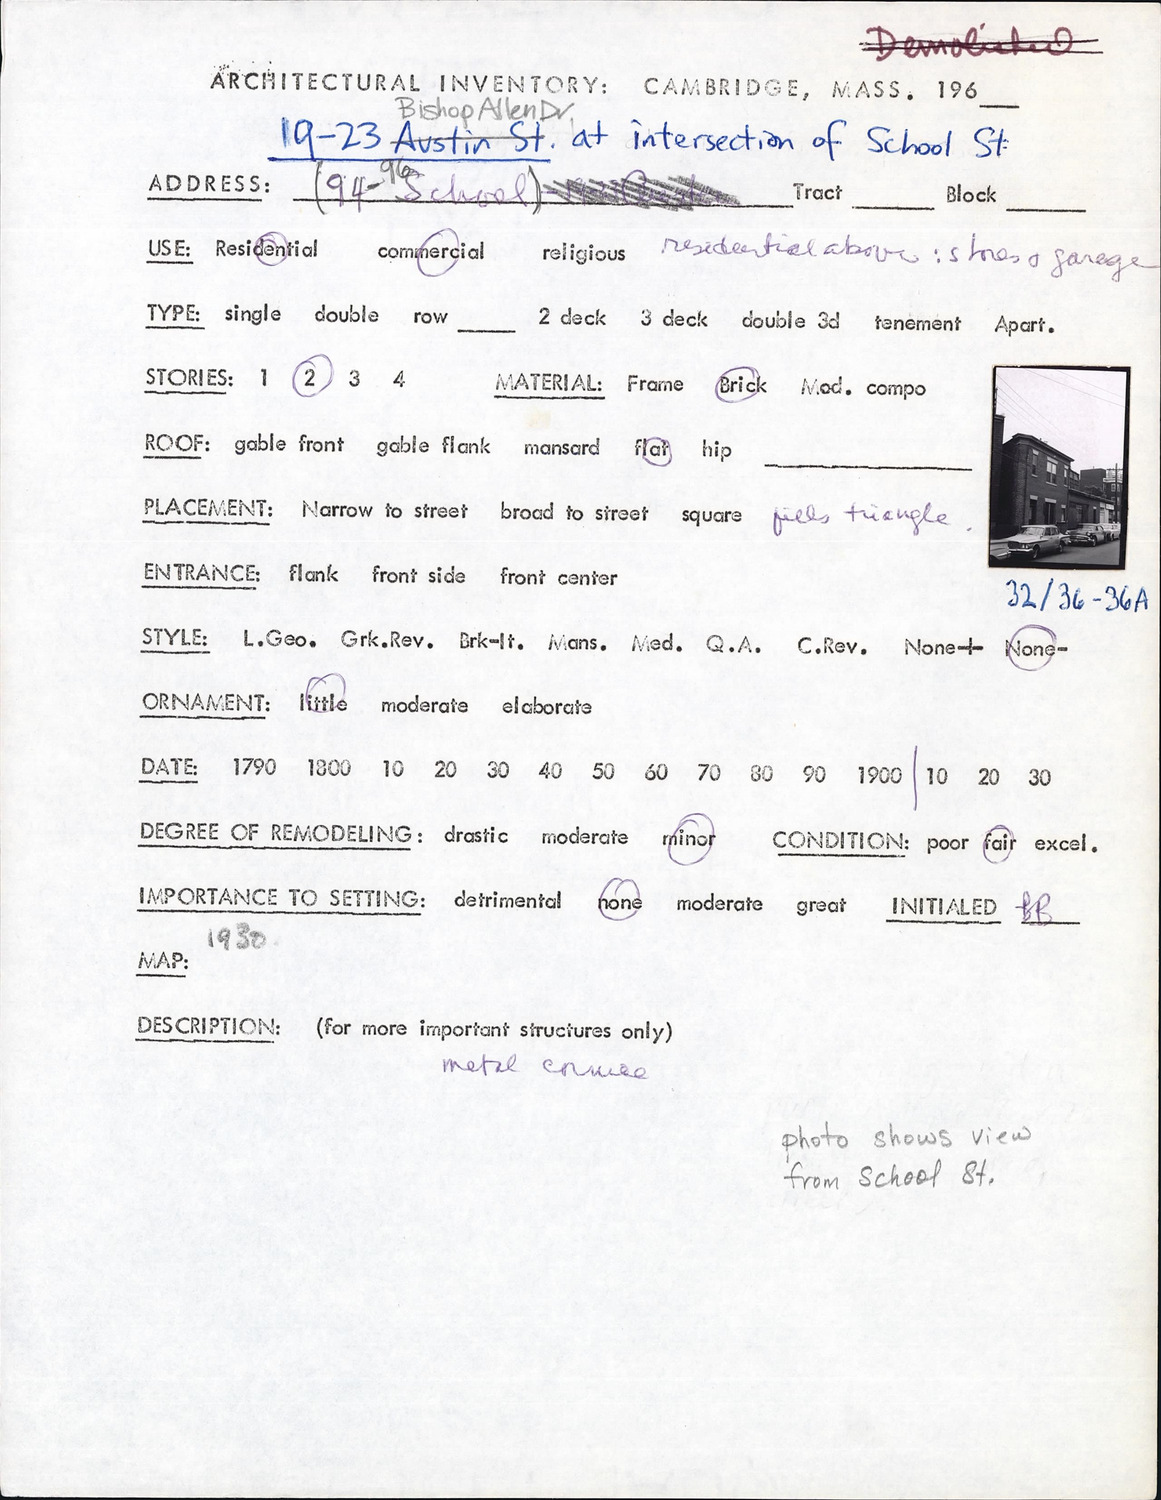 Demolished
ARCHITECTURAL INVENTORY: CAMBRIDGE, MASS. 196__
Bishop Allen Dr.
19-23 Austin St. at intersection of School St.
ADDRESS: (94-96 School) Tract ______ Block ______
USE: Residential commercial religious residential above: stores & garage
TYPE: single double row ____ 2 deck 3 deck double 3d tenement Apart.
STORIES: 1 2 3 4 MATERIAL: Frame Brick Mod. compo
ROOF: gable front gable flank mansard flat hip ______
PLACEMENT: Narrow to street broad to street square fills triangle.
ENTRANCE: flank front side front center
32/36-36A
STYLE: L.Geo. Grk.Rev. Brk-It. Mans. Med. Q.A. C.Rev. None+ None-
ORNAMENT: little moderate elaborate
DATE: 1790 1800 10 20 30 40 50 60 70 80 90 1900 10 20 30
DEGREE OF REMODELING: drastic moderate minor CONDITION: poor fair excel.
IMPORTANCE TO SETTING: detrimental none moderate great INITIALED BR
1930
MAP:
DESCRIPTION: (for more important structures only)
metal cornice
photo shows view
from School St.